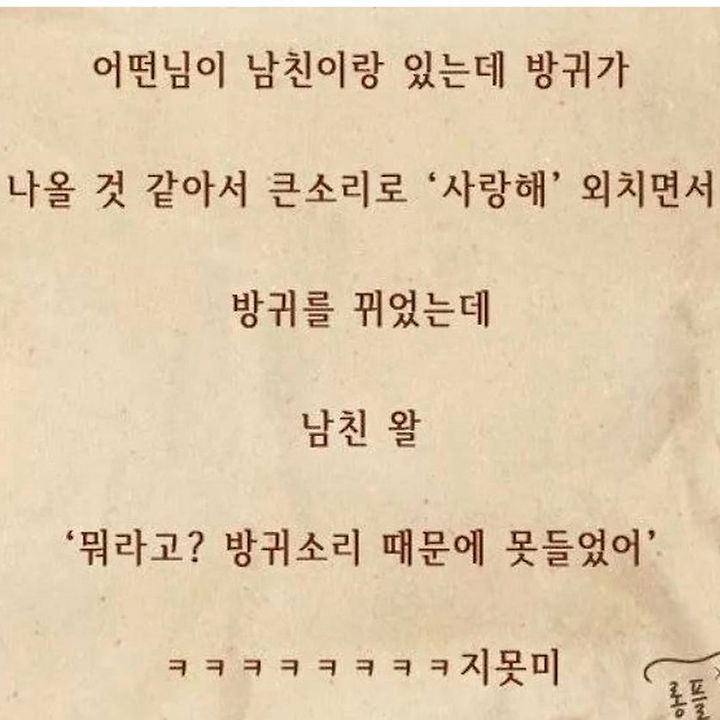 어떤님이 남친이랑 있는데 방귀가
나올 것 같아서 큰소리로 ‘사랑해’ 외치면서
방귀를 뀌었는데
남친 왈
‘뭐라고? 방귀소리 때문에 못들었어’
ㅋㅋㅋㅋㅋㅋㅋㅋ지못미